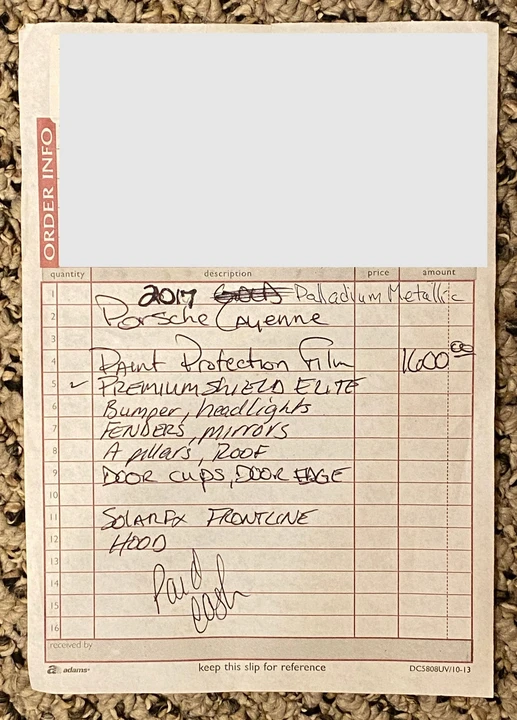 ORDER INFO
quantity description price amount
1 2017 Palladium Metallic
2 Porsche Cayenne
3
4 Paint Protection Film 1600 00
5 ✓ PREMIUMSHIELD ELITE
6 Bumper, headlights
7 FENDERS, mirrors
8 A pillars, ROOF
9 DOOR cups, DOOR EDGE
10
11 SOLARFX FRONTLINE
12 HOOD
13
14 Paid
15 cash
16
received by
a adams® keep this slip for reference DC5808UV/10-13